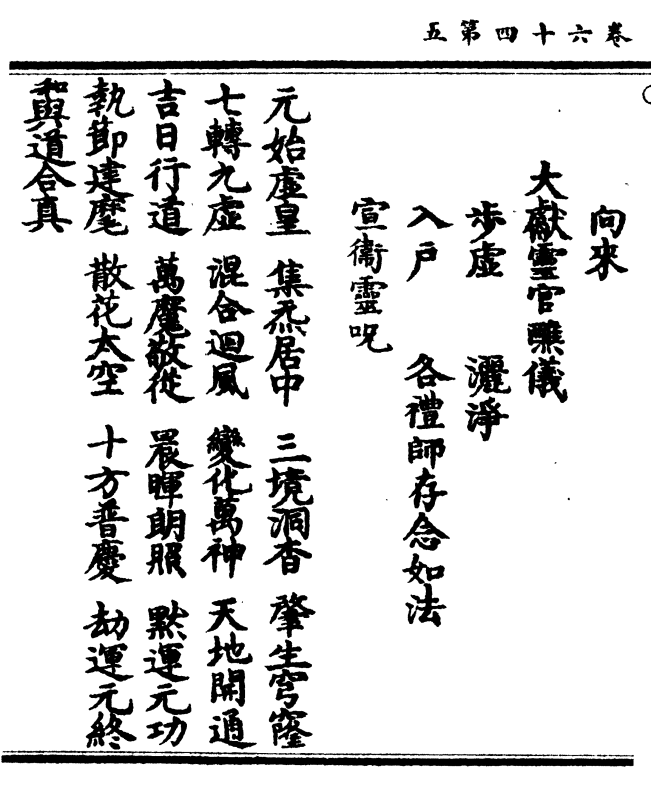 卷六十四第五
向來
大獻靈官醮儀
步虛 灑淨
入戶 各禮師存念如法
宣衞靈呪
元始虛皇 集炁居中 三境洞杳 肇生穹窿
七轉九虛 混合迴風 變化萬神 天地開通
吉日行道 萬魔敬從 晨暉朗照 默運元功
執節達麾 散花太空 十方普慶 劫運元終
和與道合真